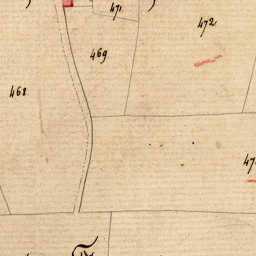 471
472
469
468